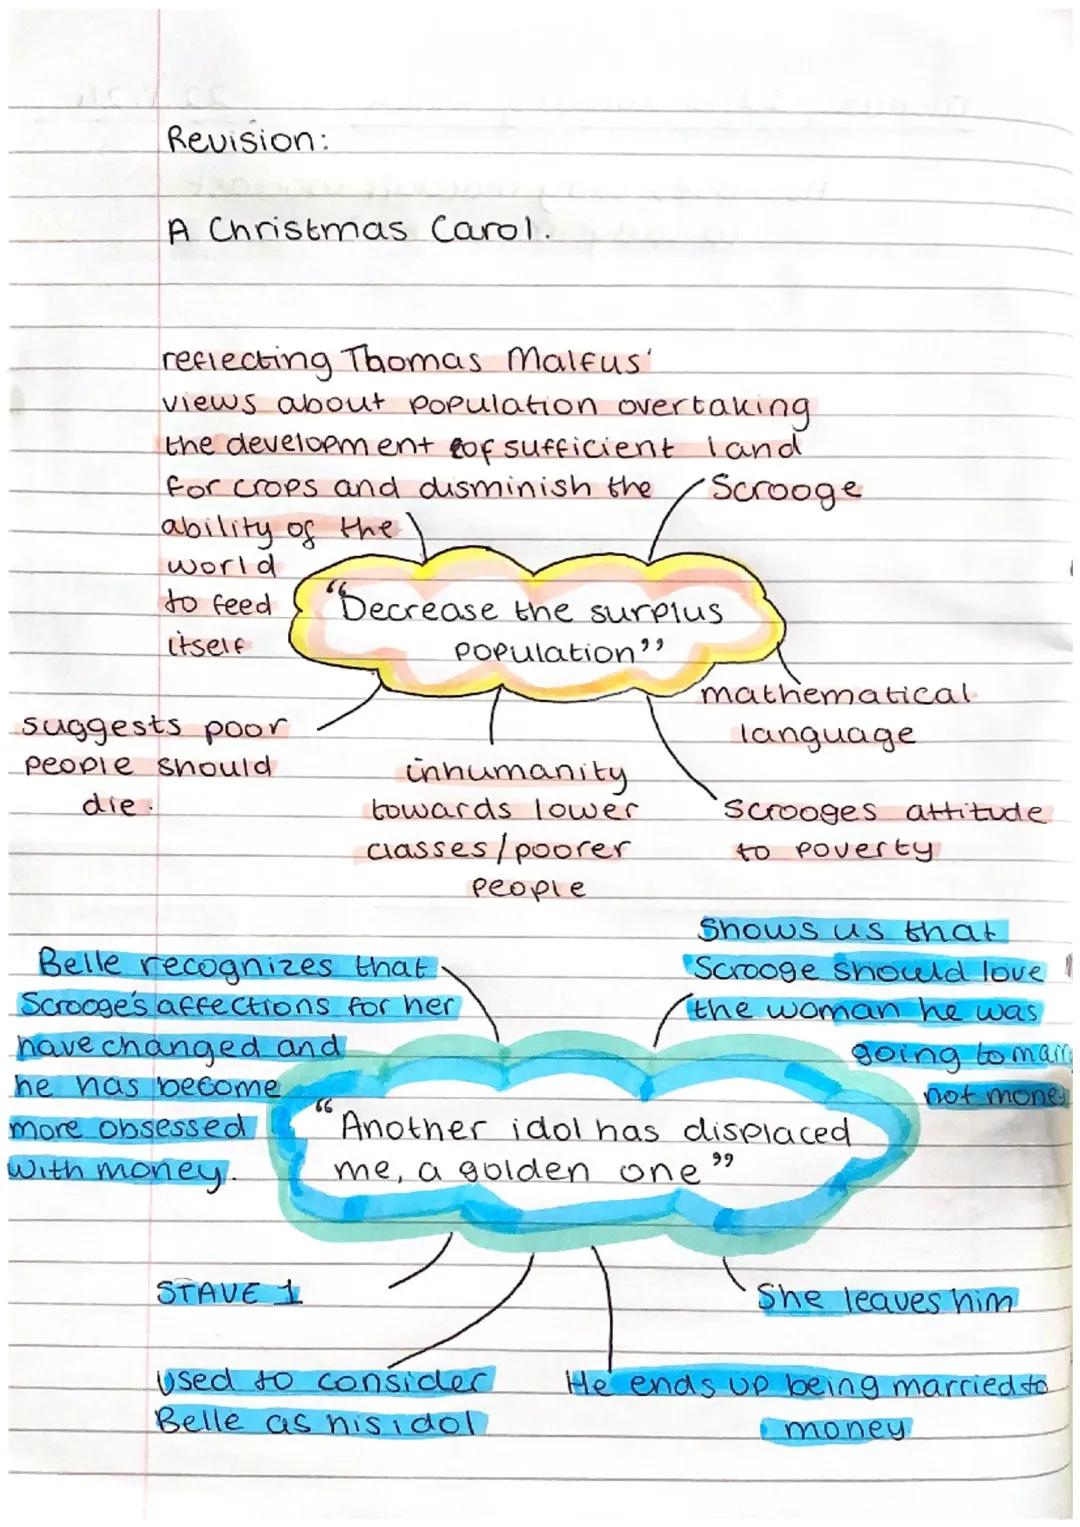 Revision:
A Christmas Carol.
reflecting Thomas Malfus'
views about population overtaking
the development of sufficient land
for crops and disminish the
ability of the
world
to feed
itself
Scrooge
"Decrease the surplus
population"
mathematical
language
suggests poor
people should
die.
inhumanity
towards lower
classes/poorer
people
Scrooges attitude
to poverty
Belle recognizes that
Scrooge's affections for her
have changed and
he has become
more obsessed
with money.
Shows us that
Scrooge should love
the woman he was
going to marry
not money
"Another idol has displaced
me, a golden one"
STAVE 1
She leaves him
Used to consider
Belle as his idol
He ends up being married to
money